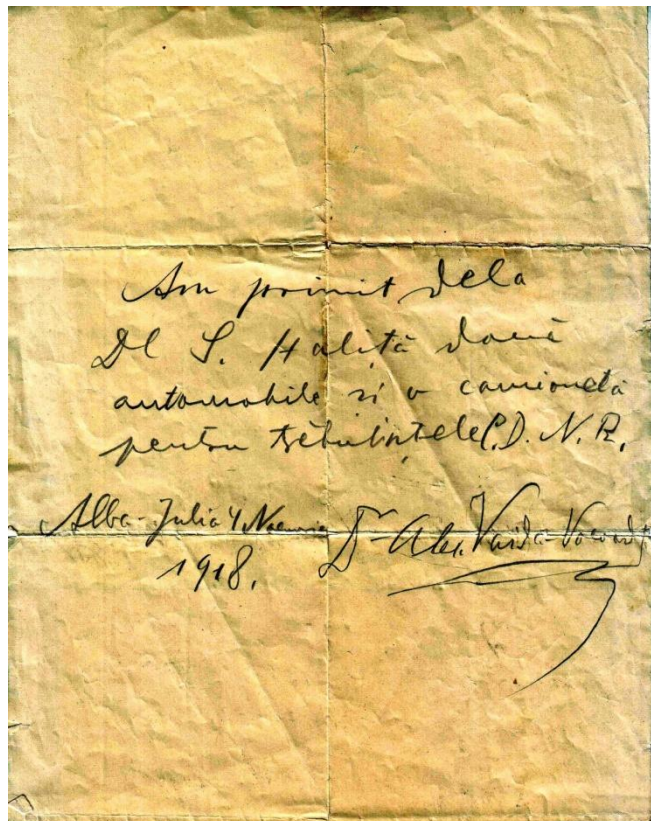 Am primit dela
Dl S. Haliță două
automobile si o camionetă
pentru trebuințele C.D.N.R.
Alba-Julia 4 Noemvrie Dr Alex Vaida-Voevod
1918.